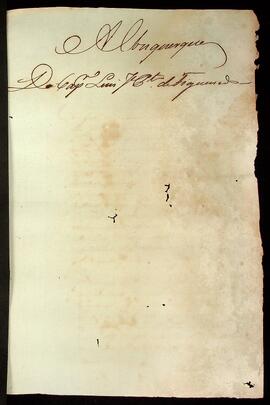 Albuquerque
Do Capº Luis Jº Ptº de Figueredo